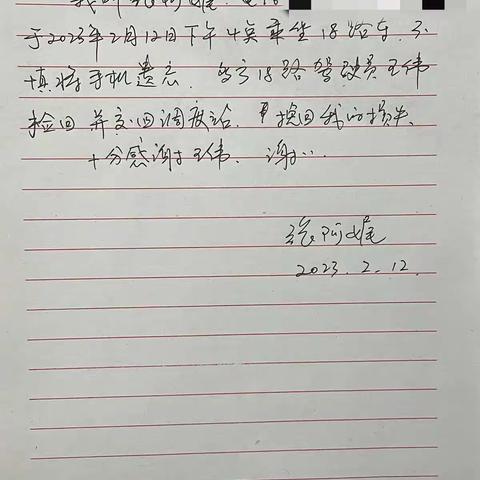 我叫张阿娓.电话
于2023年2月12日下午4点乘坐18路车.不
慎将手机遗忘.当字18路驾驶员王伟
检回并交回调度站.挽回我的损失、
十分感谢王伟、谢…
张阿娓
2023.2.12.